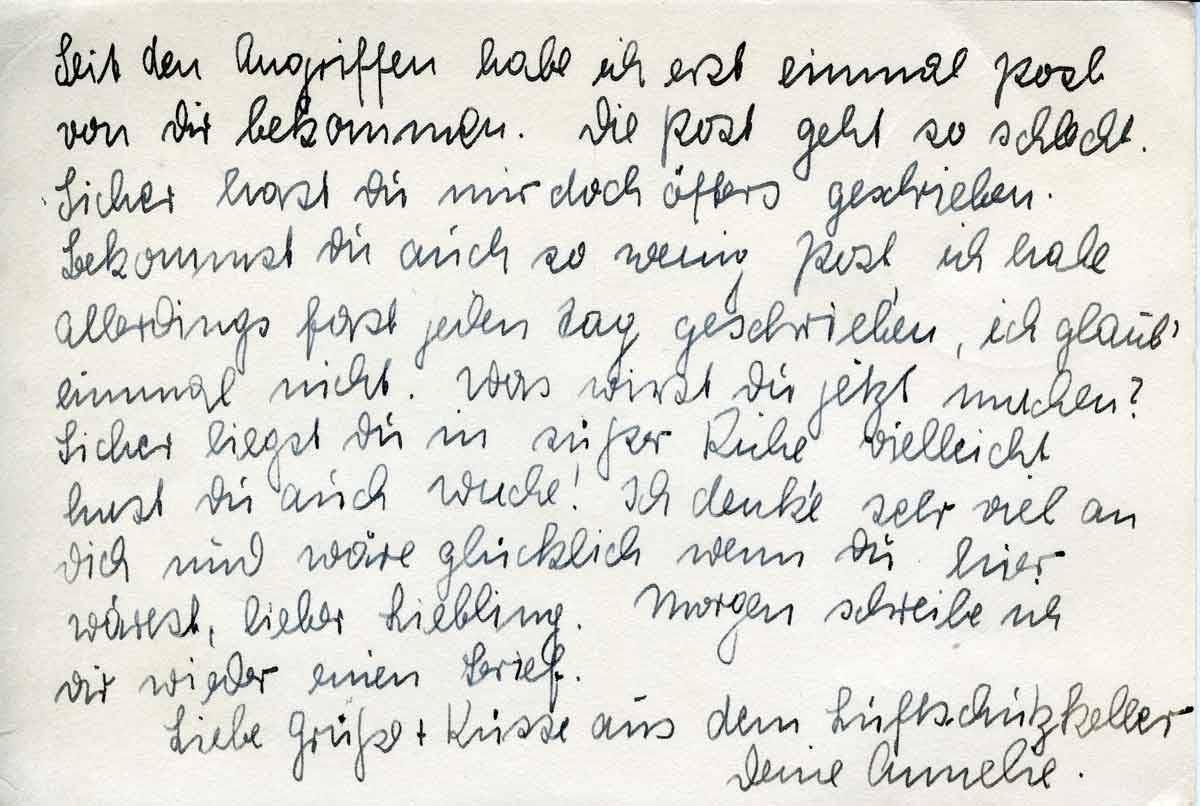 Seit den Angriffen habe ich erst einmal Post
von Dir bekommen. Die Post geht so schlecht.
Sicher hast Du mir doch öfters geschrieben.
Bekommst Du auch so wenig Post, ich habe
allerdings fast jeden Tag geschrieben, ich glaub'
einmal nicht. Was wirst Du jetzt machen?
Sicher liegst Du in süßer Ruhe vielleicht
hast Du auch Wache! Ich denke sehr viel an
Dich und wäre glücklich wenn Du hier
wärest, lieber Liebling. Morgen schreibe ich
Dir wieder einen Brief.
Liebe Grüße + Küsse aus dem Luftschutzkeller
Deine Annelie.